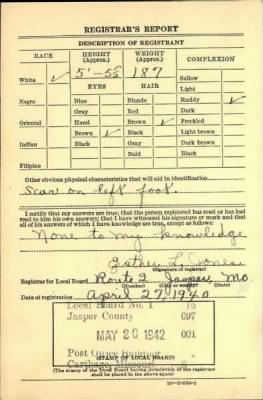 REGISTRAR'S REPORT
DESCRIPTION OF REGISTRANT
RACE HEIGHT (Approx.) WEIGHT (Approx.) COMPLEXION
White ✓ 5'-5½ 187 Sallow
EYES HAIR Light
Negro Blue Blonde Ruddy ✓
Gray Red Dark
Oriental Hazel Brown ✓ Freckled
Brown ✓ Black Light brown
Indian Black Gray Dark brown
Bald Black
Filipino
Other obvious physical characteristics that will aid in identification
Scar on left foot.
I certify that my answers are true; that the person registered has read or has had read to him his own answers; that I have witnessed his signature or mark and that all of his answers of which I have knowledge are true, except as follows:
None to my knowledge
Esther L. Jones
(Signature of registrar)
Registrar for Local Board Route 2 Jasper Mo
(Number) (City or county) (State)
Date of registration April 27, 1940
Local Board No. 1 75
Jasper County 097
MAY 20 1942 001
Post Office Building
Carthage, Missouri
(STAMP OF LOCAL BOARD)
(The stamp of the Local Board having jurisdiction of the registrant shall be placed in the above space)